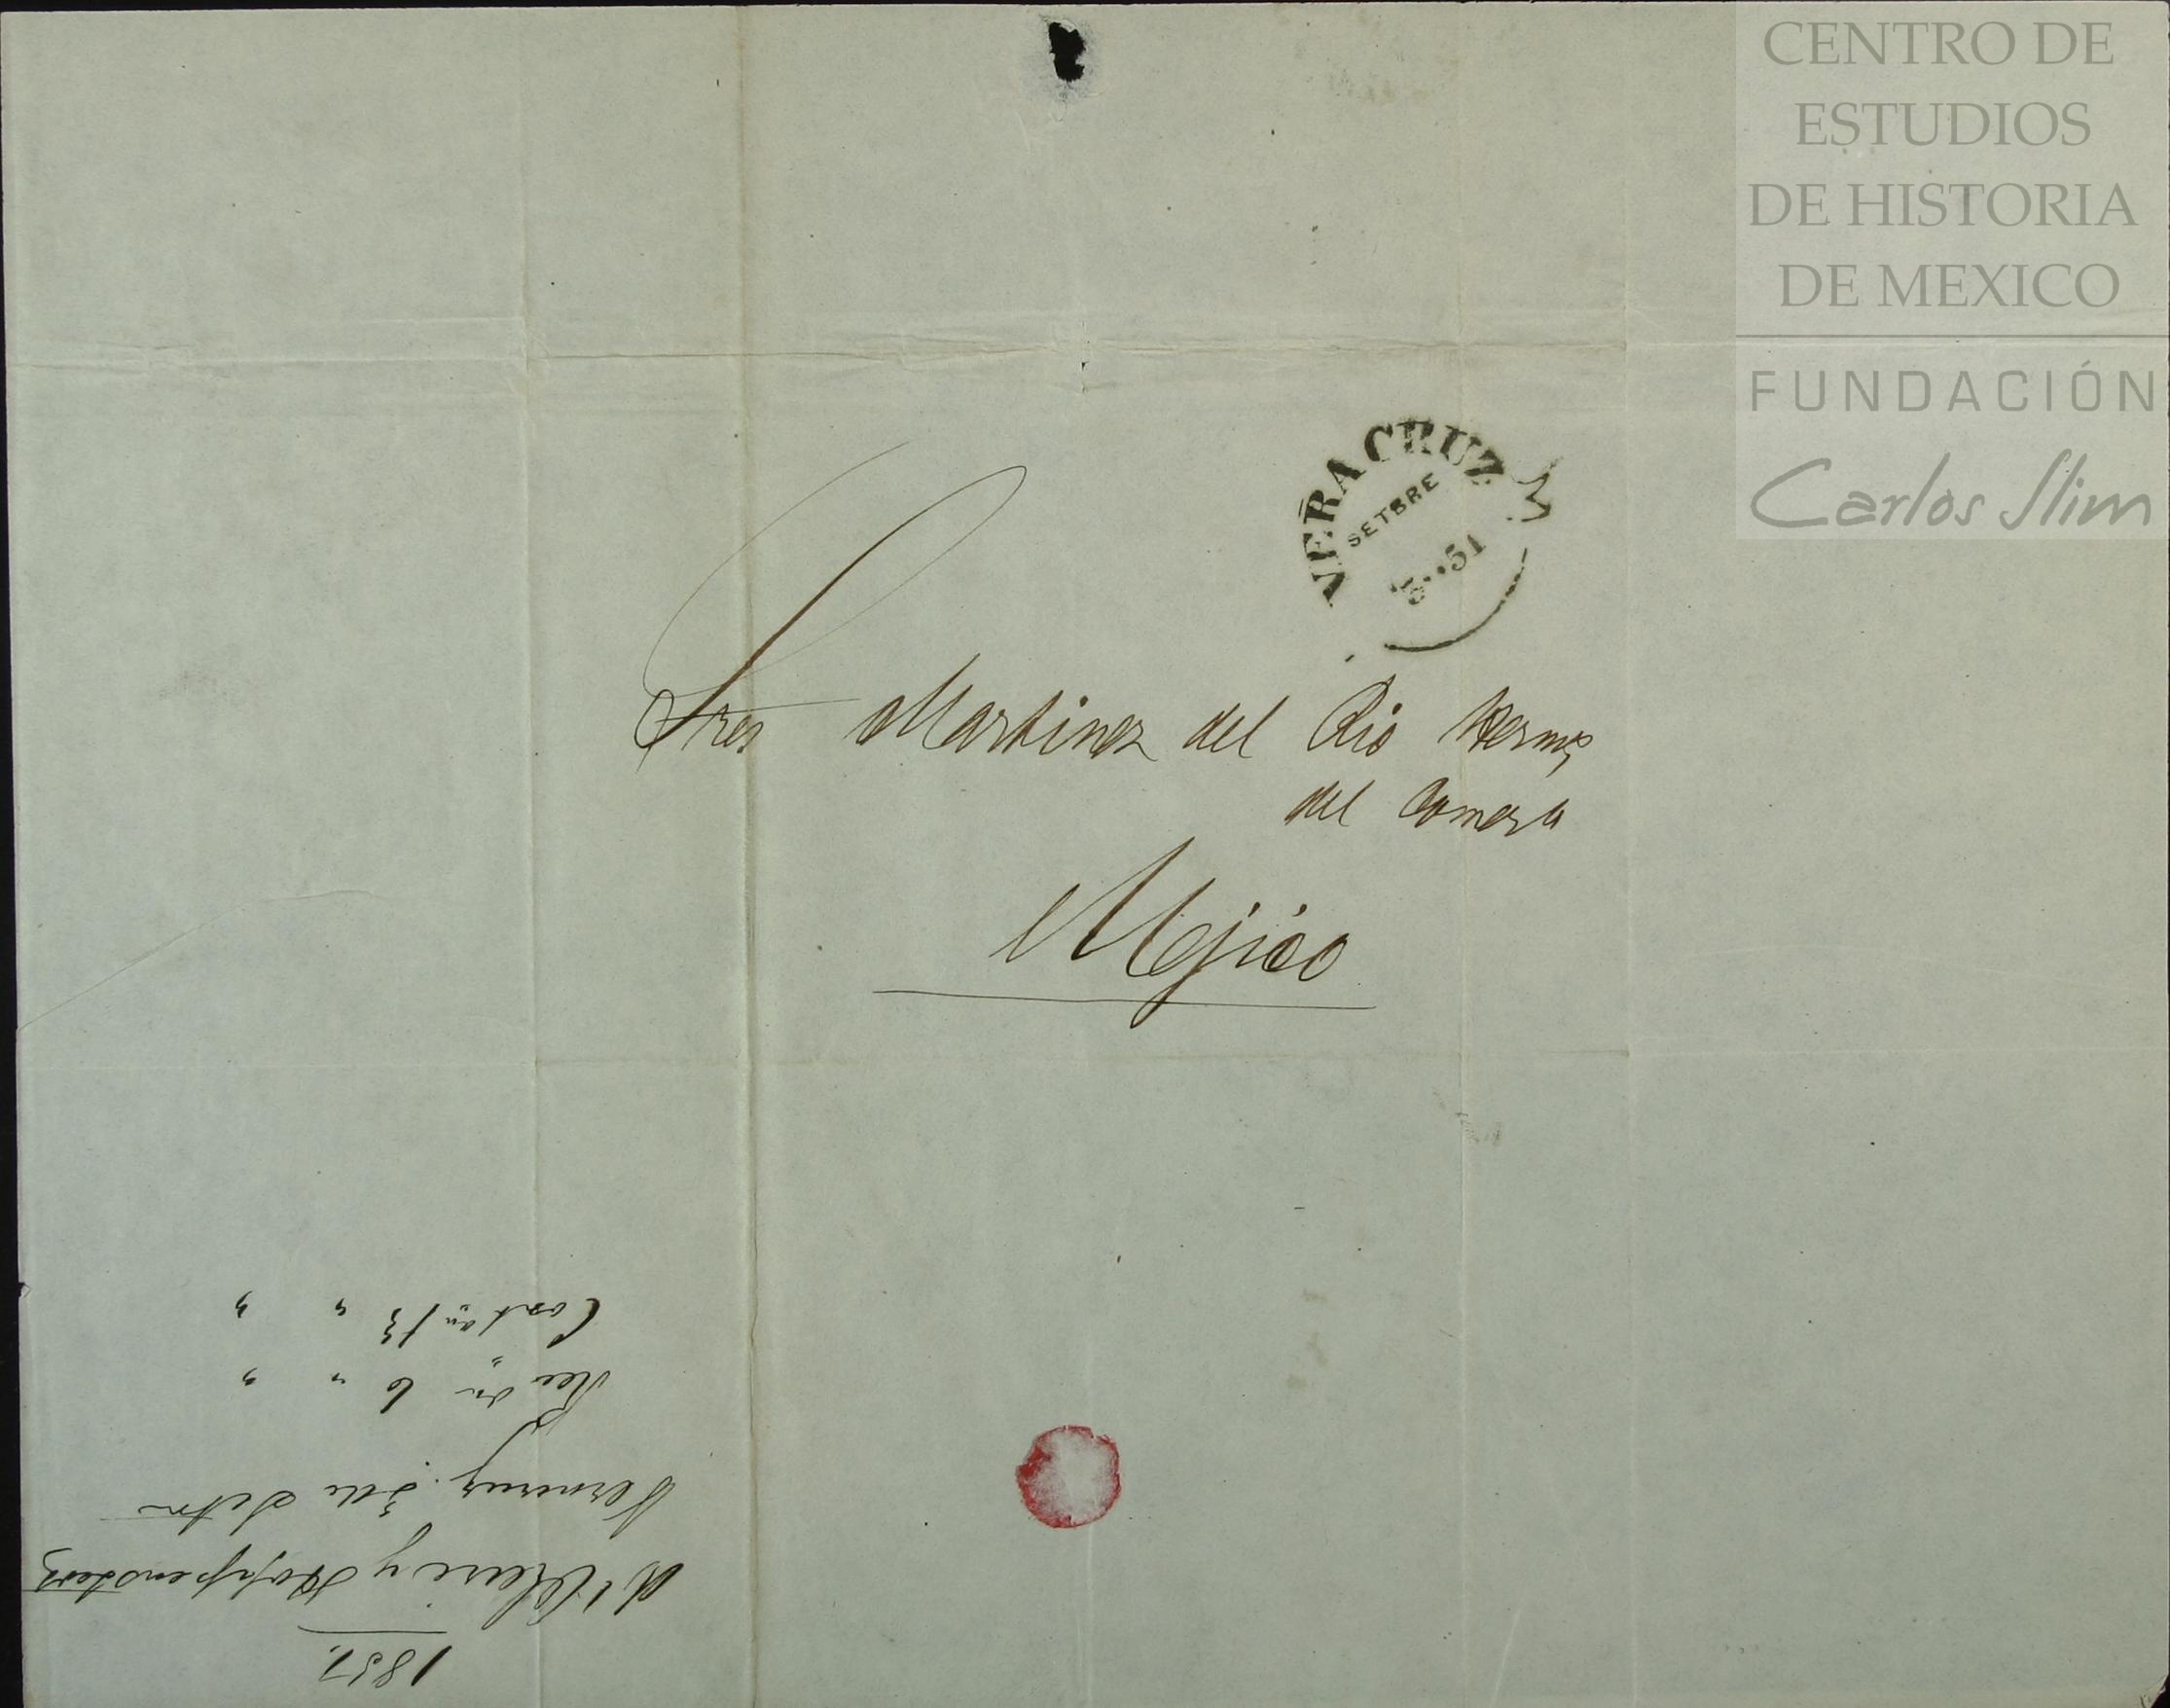 CENTRO DE
ESTUDIOS
DE HISTORIA
DE MEXICO
FUNDACIÓN
Carlos Slim
VERACRUZ
SETBRE
3 51
Sres Martinez del Rio Herms
del Comercio
Mejico
1851.
Veracruz 3 de Setre
Rec en 6 " "
Cont en 13 " "